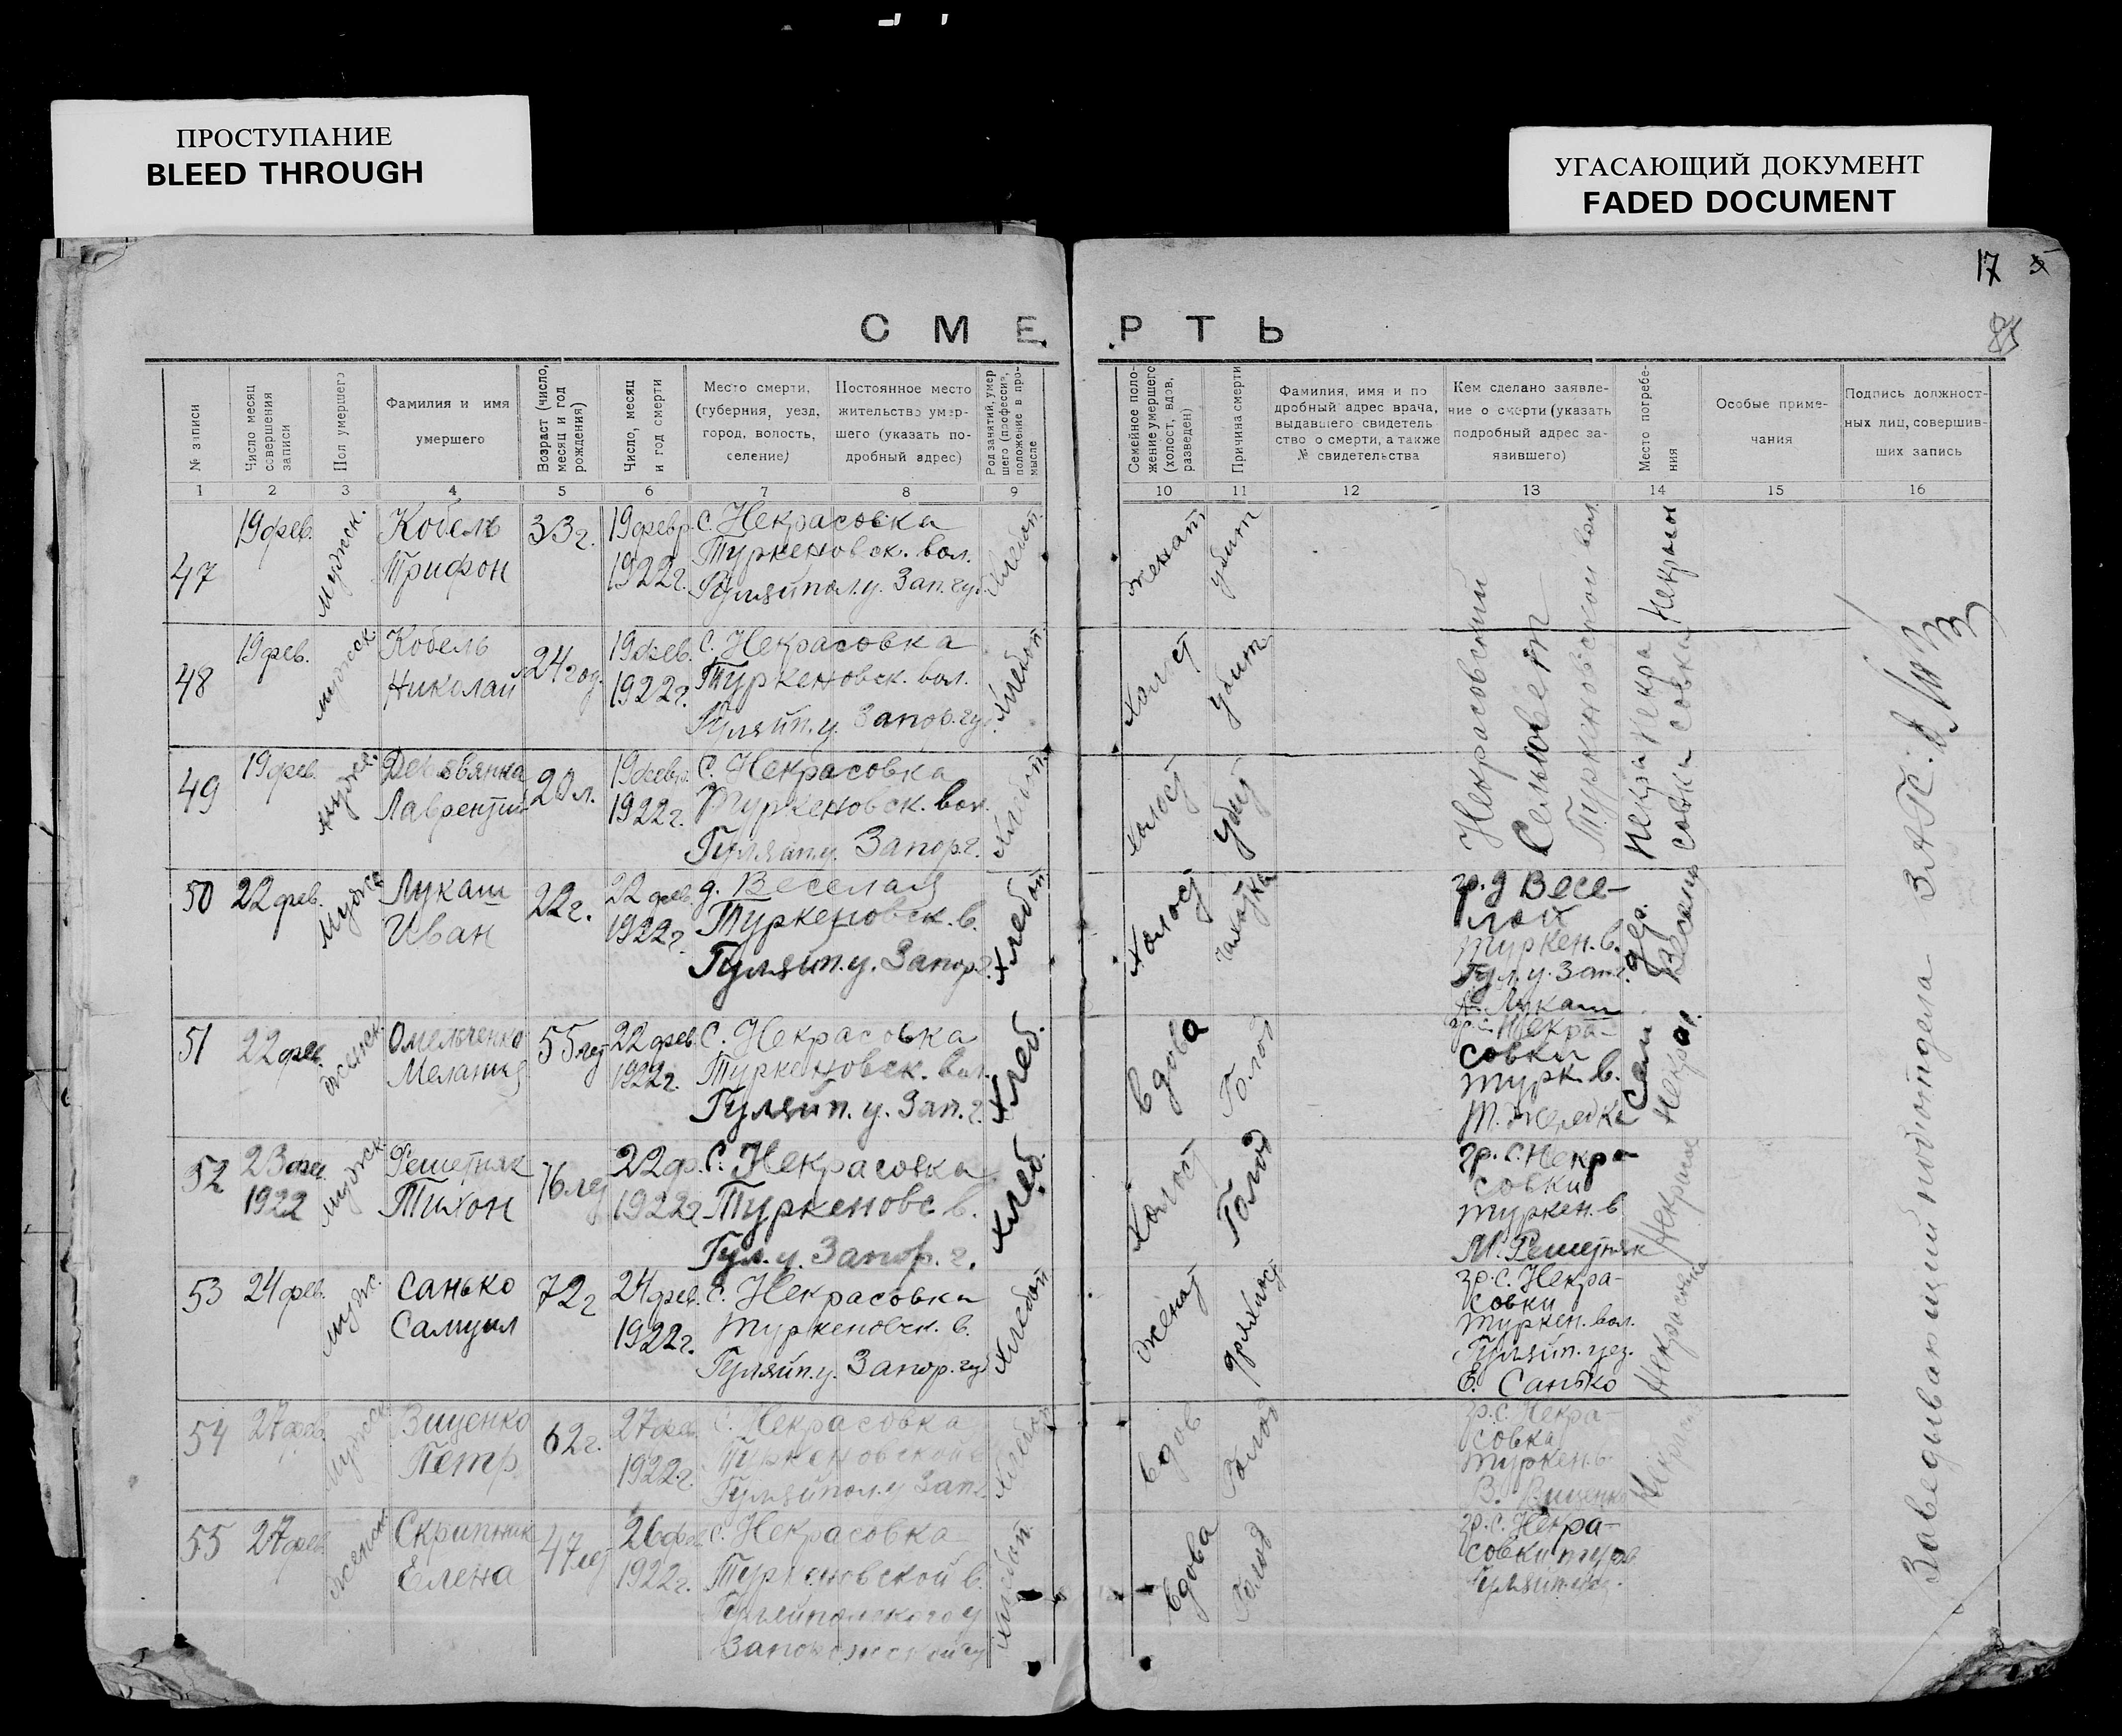 ПРОСТУПАНИЕ
BLEED THROUGH
УГАСАЮЩИЙ ДОКУМЕНТ
FADED DOCUMENT
17
СМЕРТЬ
№ записи
Число месяц
совершения
записи
Пол умершего
Фамилия и имя
умершего
Возраст (число,
месяц и год
рождения)
Число, месяц
и год смерти
Место смерти,
(губерния, уезд,
город, волость,
селение)
Постоянное место
жительство умер-
шего (указать по-
дробный адрес)
Род занятий, умер
шего (профессия,
положение в про-
мысле
Семейное поло-
жение умершего
(холост, вдов,
разведен)
Причина смерти
Фамилия, имя и по
дробный адрес врача,
выдавшего свидетель
ство о смерти, а также
№ свидетельства
Кем сделано заявле-
ние о смерти (указать
подробный адрес за-
явившего)
Место погребе-
ния
Особые приме-
чания
Подпись должност-
ных лиц, совершив-
ших запись
1 2 3 4 5 6 7 8 9 10 11 12 13 14 15 16
47
19 фев.
мужск.
Кобель
Трифон
33 г.
19 февр.
1922 г.
с. Некрасовка
Туркеновск. вол.
Гуляйпол. у. Зап. губ.
Хлебоп.
женат
убит
48
19 фев.
мужск.
Кобель
Николай
24 год.
19 фев.
1922 г.
С. Некрасовка
Туркеновск. вол.
Гуляйп. у. Запор. гу.
Хлебоп.
Холост
убит
49
19 фев.
мужс.
Лаврентий
20 л.
19 февр.
1922 г.
С. Некрасовка
Туркеновск. вол.
Гуляйп. у. Запор. г.
Хлебоп.
Холост
убит
Некрасовский
Сельсовет
Туркеновской вол.
50
22 фев.
мужс
Лукаш
Иван
22 г.
22 фев.
1922 г.
д. Веселая
Туркеновск. в.
Гуляйп. у. Запор. г.
Хлебоп
Холост
чахотка
гр. д Весе-
лой
Туркен. в.
Гул. у. Зап. г.
Лукаш
дер.
51
22 фев.
женск.
Омельченко
Мелания
55 лет
22 фев.
1922 г.
С. Некрасовка
Туркеновск. вол.
Гуляйп. у. Зап. г.
Хлеб.
вдова
Голод
гр. с. Некра-
совки
Турк. в.
52
23 фев.
1922
мужск.
Решетняк
Тихон
16 лет
22 ф.
1922 г
С. Некрасовка
Туркеновс в.
Гул. у. Запор. г.
Хлеб.
Холост
Голод
гр. с. Некра
совки
Туркен. в
М. Решетняк
53
24 фев.
мужс.
Санько
Самуил
72 г
24 фев.
1922 г.
С. Некрасовки
Туркеновск. в.
Гуляйп. у. Запор. губ
Хлебоп
женат
дряхлост
гр. с. Некра-
совки
Туркен. вол.
Гуляйп. уез.
Санько
Некрасовка
54
27 фев.
мужск.
Виценко
Петр
62 г.
27 фев.
1922 г.
С. Некрасовка
Туркеновской в
Гуляйпол. у Зап.
Хлебоп
вдов
Голод
гр. с. Некра-
совка
Туркен. в.
В. Виценко
55
27 фев.
женск.
Скрипник
Елена
47 лет
26 фев
1922 г.
с. Некрасовка
Туркеновской в.
Гуляйпольского у
Запорожской гу
Хлебоп.
вдова
Голод
гр. с. Некра-
совки
Гуляйп. уез.
Заведывающий подотдела ЗАГС: